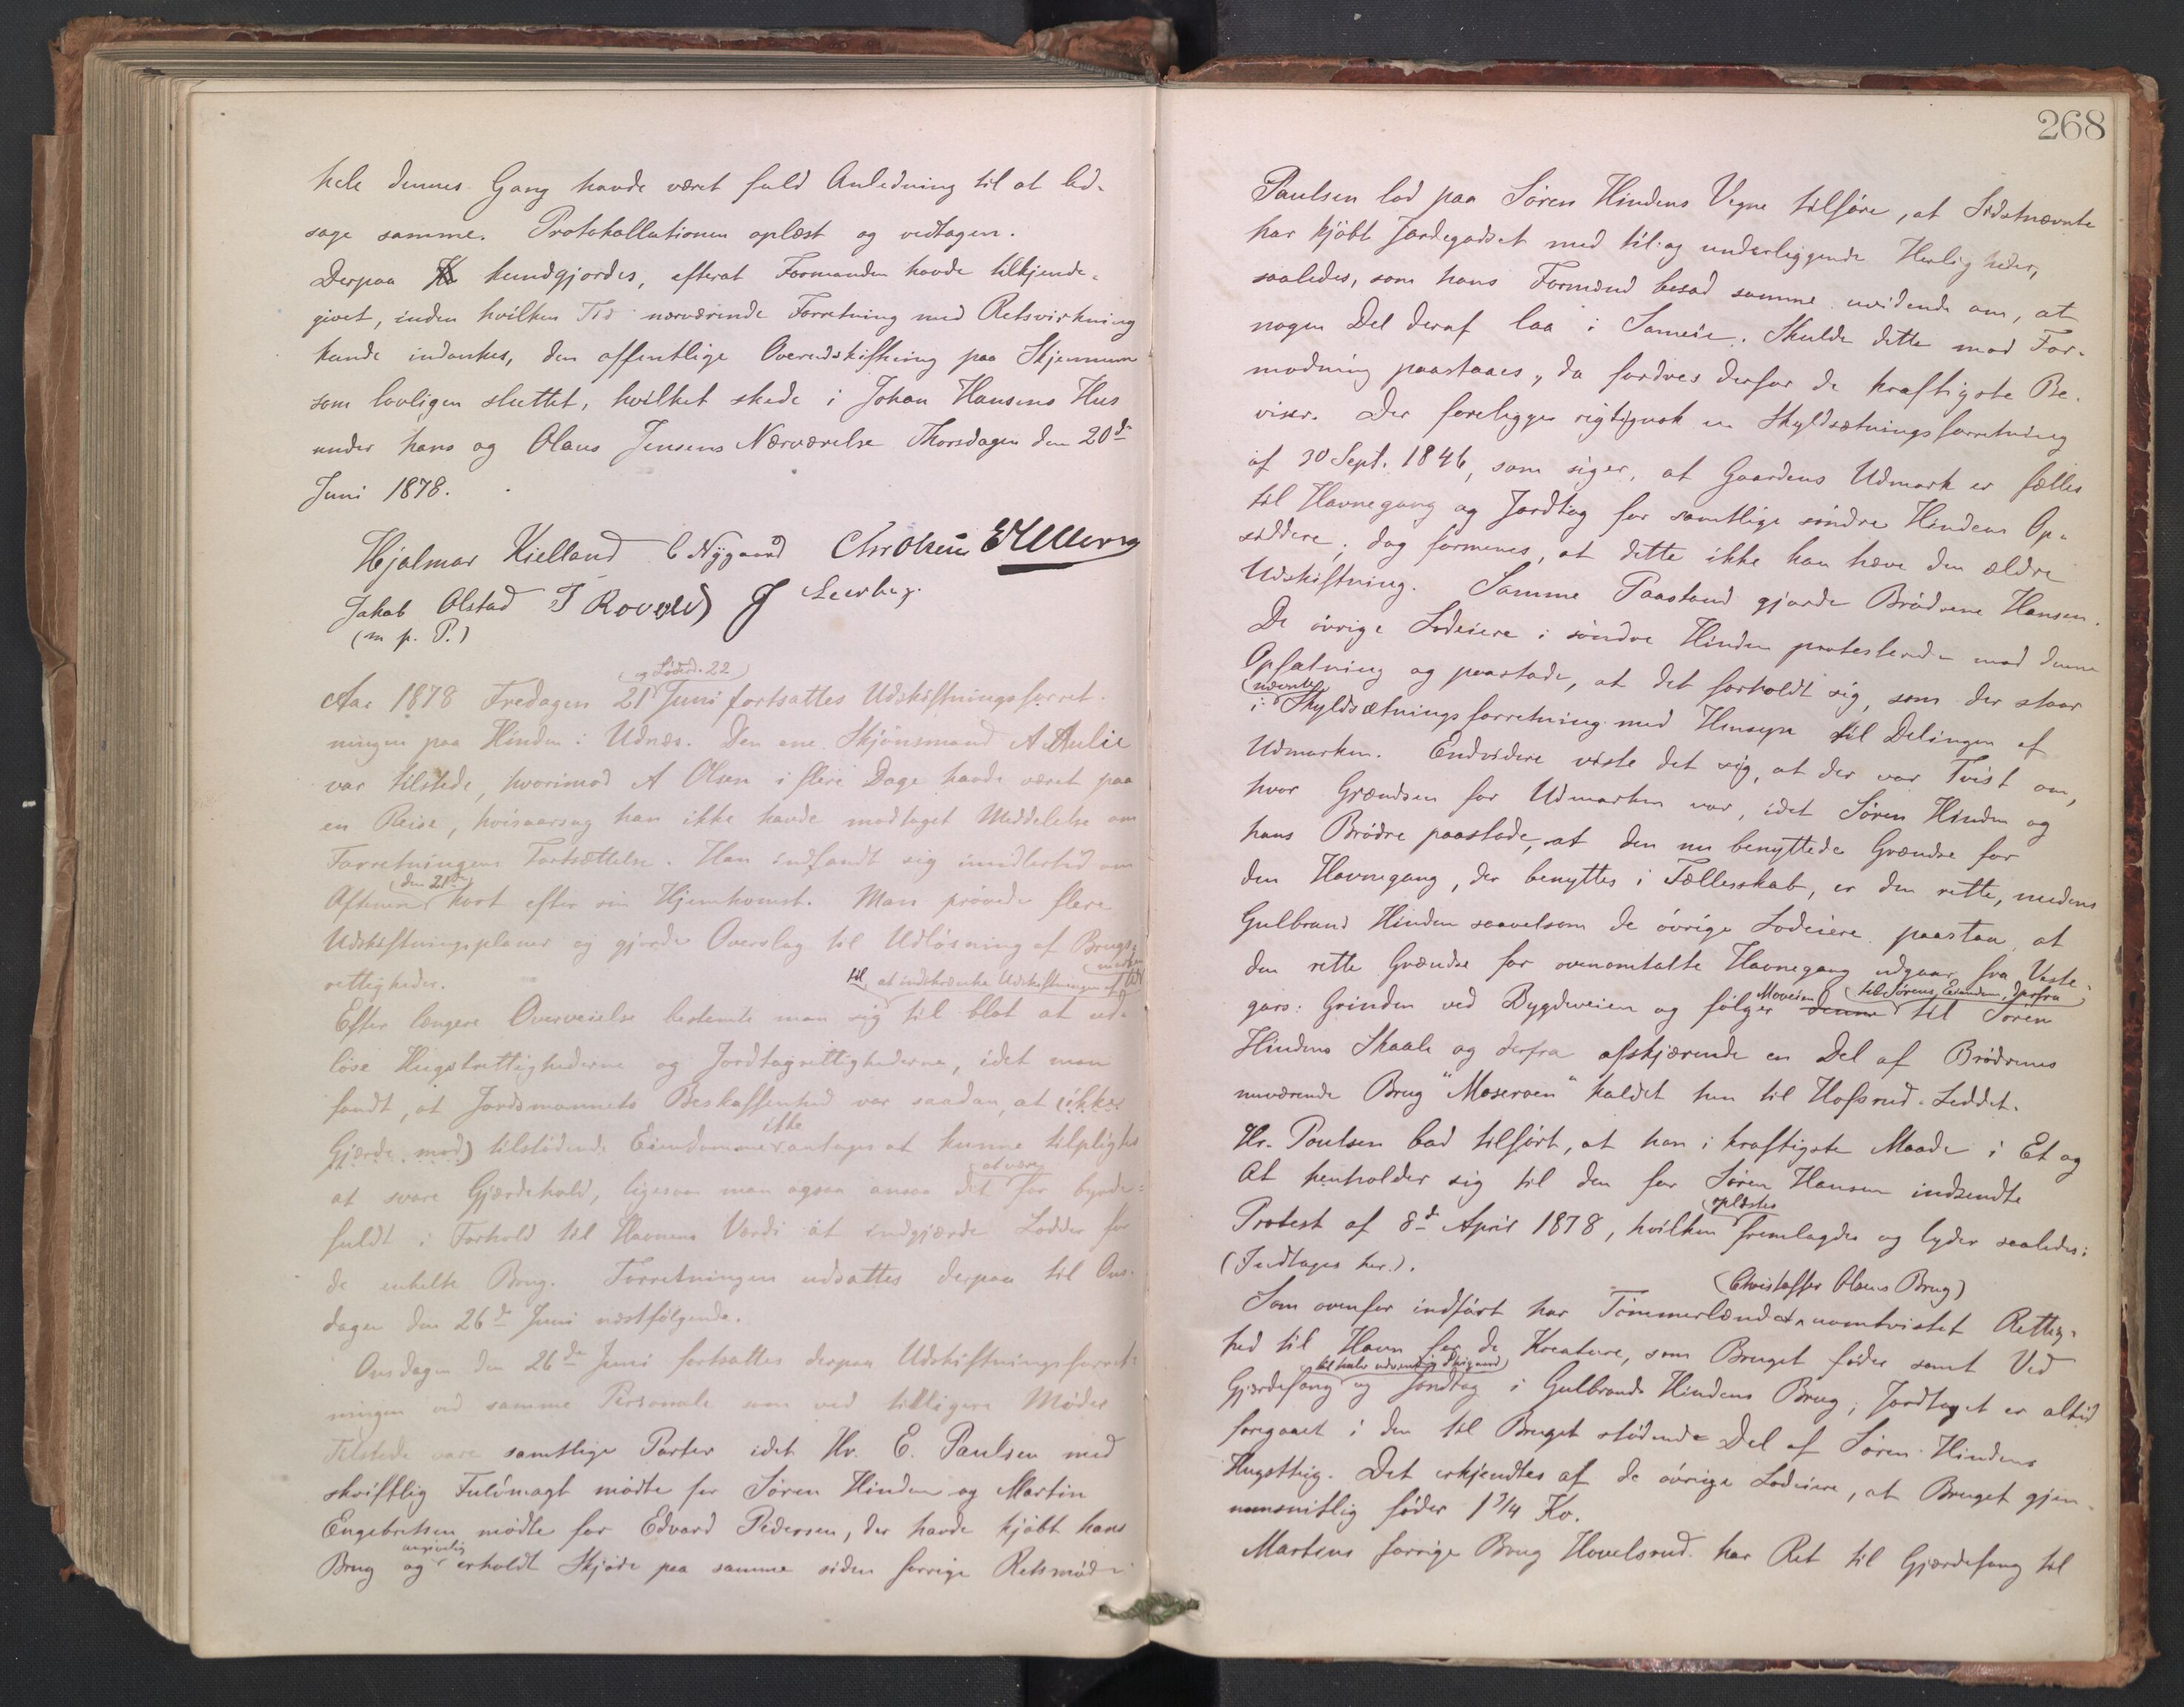 hele dennes Gang havde været fuld Anledning til at led-
sage samme. Protokollationen oplæst og vedtagen.
Derpaa kundgjordes, efterat Formanden havde tilkjende-
givet, inden hvilken Tid nærværende Forretning med Retsvirkning
kunde indankes, den offentlige Overudskiftning paa Skjennum
som lovligen sluttet, hvilket skede i Johan Hansens Hus
under hans og Olaus Jensens Nærværelse Thorsdagen den 20de
Juni 1878.
Hjalmar Kielland C Nygaard Chr Olsen
Jakob Olstad J
(m p. P.)
(og Løverd. 22)
Aar 1878 Fredagen 21de Juni fortsattes Udskiftningsforret-
ningen paa Hinden i Udnæs. Den ene Skjønsmand A Aulie
var tilstede, hvorimod A Olsen i flere Dage havde været paa
en Reise, hvisaarsag han ikke havde modtaget Meddelelse om
Forretningens Fortsættelse. Han indfandt sig imidlertid om
(den 21de)
Aftenen kort efter sin Hjemkomst. Man prøvede flere
Udskiftningsplaner og gjorde Overslag til Udløsning af Brugs-
rettigheder.
til at indskrænke Udskiftningen af Ud(marken
Efter længere Overveielse bestemte man sig til blot at ud-
løse Hugstrettighederne og Jordtagrettighederne, idet man
fandt, at Jordsmonnets Beskaffenhed var saadan, at (ikke
ikke
Gjærde mod) tilstødende Eiendomme antages at kunne tilpligtes
(at være
at svare Gjærdehold, ligesom man ogsaa ansaa det for byrde-
fuldt i Forhold til Havnens Værdi at indgjærde Lodder for
de enkelte Brug. Forretningen udsattes derpaa til Ons-
dagen den 26de Juni næstfølgende.
Onsdagen den 26de Juni fortsattes derpaa Udskiftningsforret-
ningen ved samme Personale som ved tidligere Møder
Tilstede vare samtlige Parter idet Hr. E. Paulsen med
skriftlig Fuldmagt mødte for Søren Hinden og Martin
Engebretsen mødte for Edvard Pedersen, der havde kjøbt hans
angivelig
Brug og erholdt Skjøde paa samme siden forrige Retsmøde
268
Paulsen lod paa Søren Hindens Vegne tilføre, at Sidstnævnte
har kjøbt Jordegodset med til- og underliggende Herligheder,
saaledes, som hans Formænd besad samme uvidende om, at
nogen Del deraf laa i Sameie. Skulde dette mod For-
modning paastaaes, da fordres derfor de kraftigste Be-
viser. Der foreligger rigtignok en Skyldsætningsforretning
af 30 Sept. 1846, som siger, at Gaardens Udmark er fælles
til Havnegang og Jordtag for samtlige søndre Hindens Op-
siddere, dog formenes, at dette ikke kan hæve den ældre
Udskiftning. Samme Paastand gjorde Brødrene Hansen.
De øvrige Lodeiere i søndre Hinden protesterede mod denne
Opfatning og paastode, at det forholdt sig, som der staar
(nævnte
i Skyldsætningsforretning med Hensyn til Delingen af
Udmarken. Endvidere viste det sig, at der var Tvist om,
hvor Grændsen for Udmarken var, idet Søren Hinden og
hans Brødre paastode, at den nu benyttede Grændse for
den Havnegang, der benyttes i Fællesskab, er den rette, medens
Gulbrand Hinden saavelsom de øvrige Lodeiere paastaa, at
den rette Grændse for ovenomtalte Havnegang udgaar fra Veste-
Moveien (til Sørens Eiendom, derfra
gars: Grinden ved Bygdeveien og følger denne til Søren
Hindens Skaale og derfra afskjærende en Del af Brødrenes
nuværende Brug "Moserøen" kaldet hen til Hofsrud-Leddet.
Hr. Poulsen bad tilført, at han i kraftigste Maade i Et og
Alt henholder sig til den for Søren Hansen indsendte
(oplæstes
Protest af 8de April 1878, hvilken fremlagdes og lyder saaledes:
(Indtages her.).
(Christoffer Olsens Brug)
Som ovenfor indført har Tømmerlænden uomtvistet Rettig-
hed til Havn for de Kreature, som Bruget føder samt Ved
(til halve
Gjærdefang og Jordtag i Gulbrands Hindens Brug; Jordtaget er altid
foregaaet i den til Bruget stødende Del af Søren Hindens
Hugstteig. Det erkjendtes af de øvrige Lodeiere, at Bruget gjen-
nemsnitlig føder 1 3/4 Ko.
Martins forrige Brug Hovelsrud har Ret til Gjærdefang til